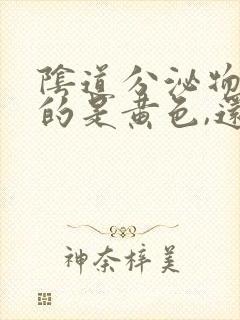 陰道分泌物
的是黃色,還
神奈梓美